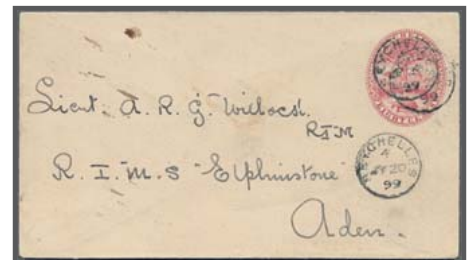 SEYCHELLES
99
Lieut. A. R. G. Willock.
RIM
R. I. M. S "Elphinstone"
SEYCHELLES
4
JY 20
99
Aden.